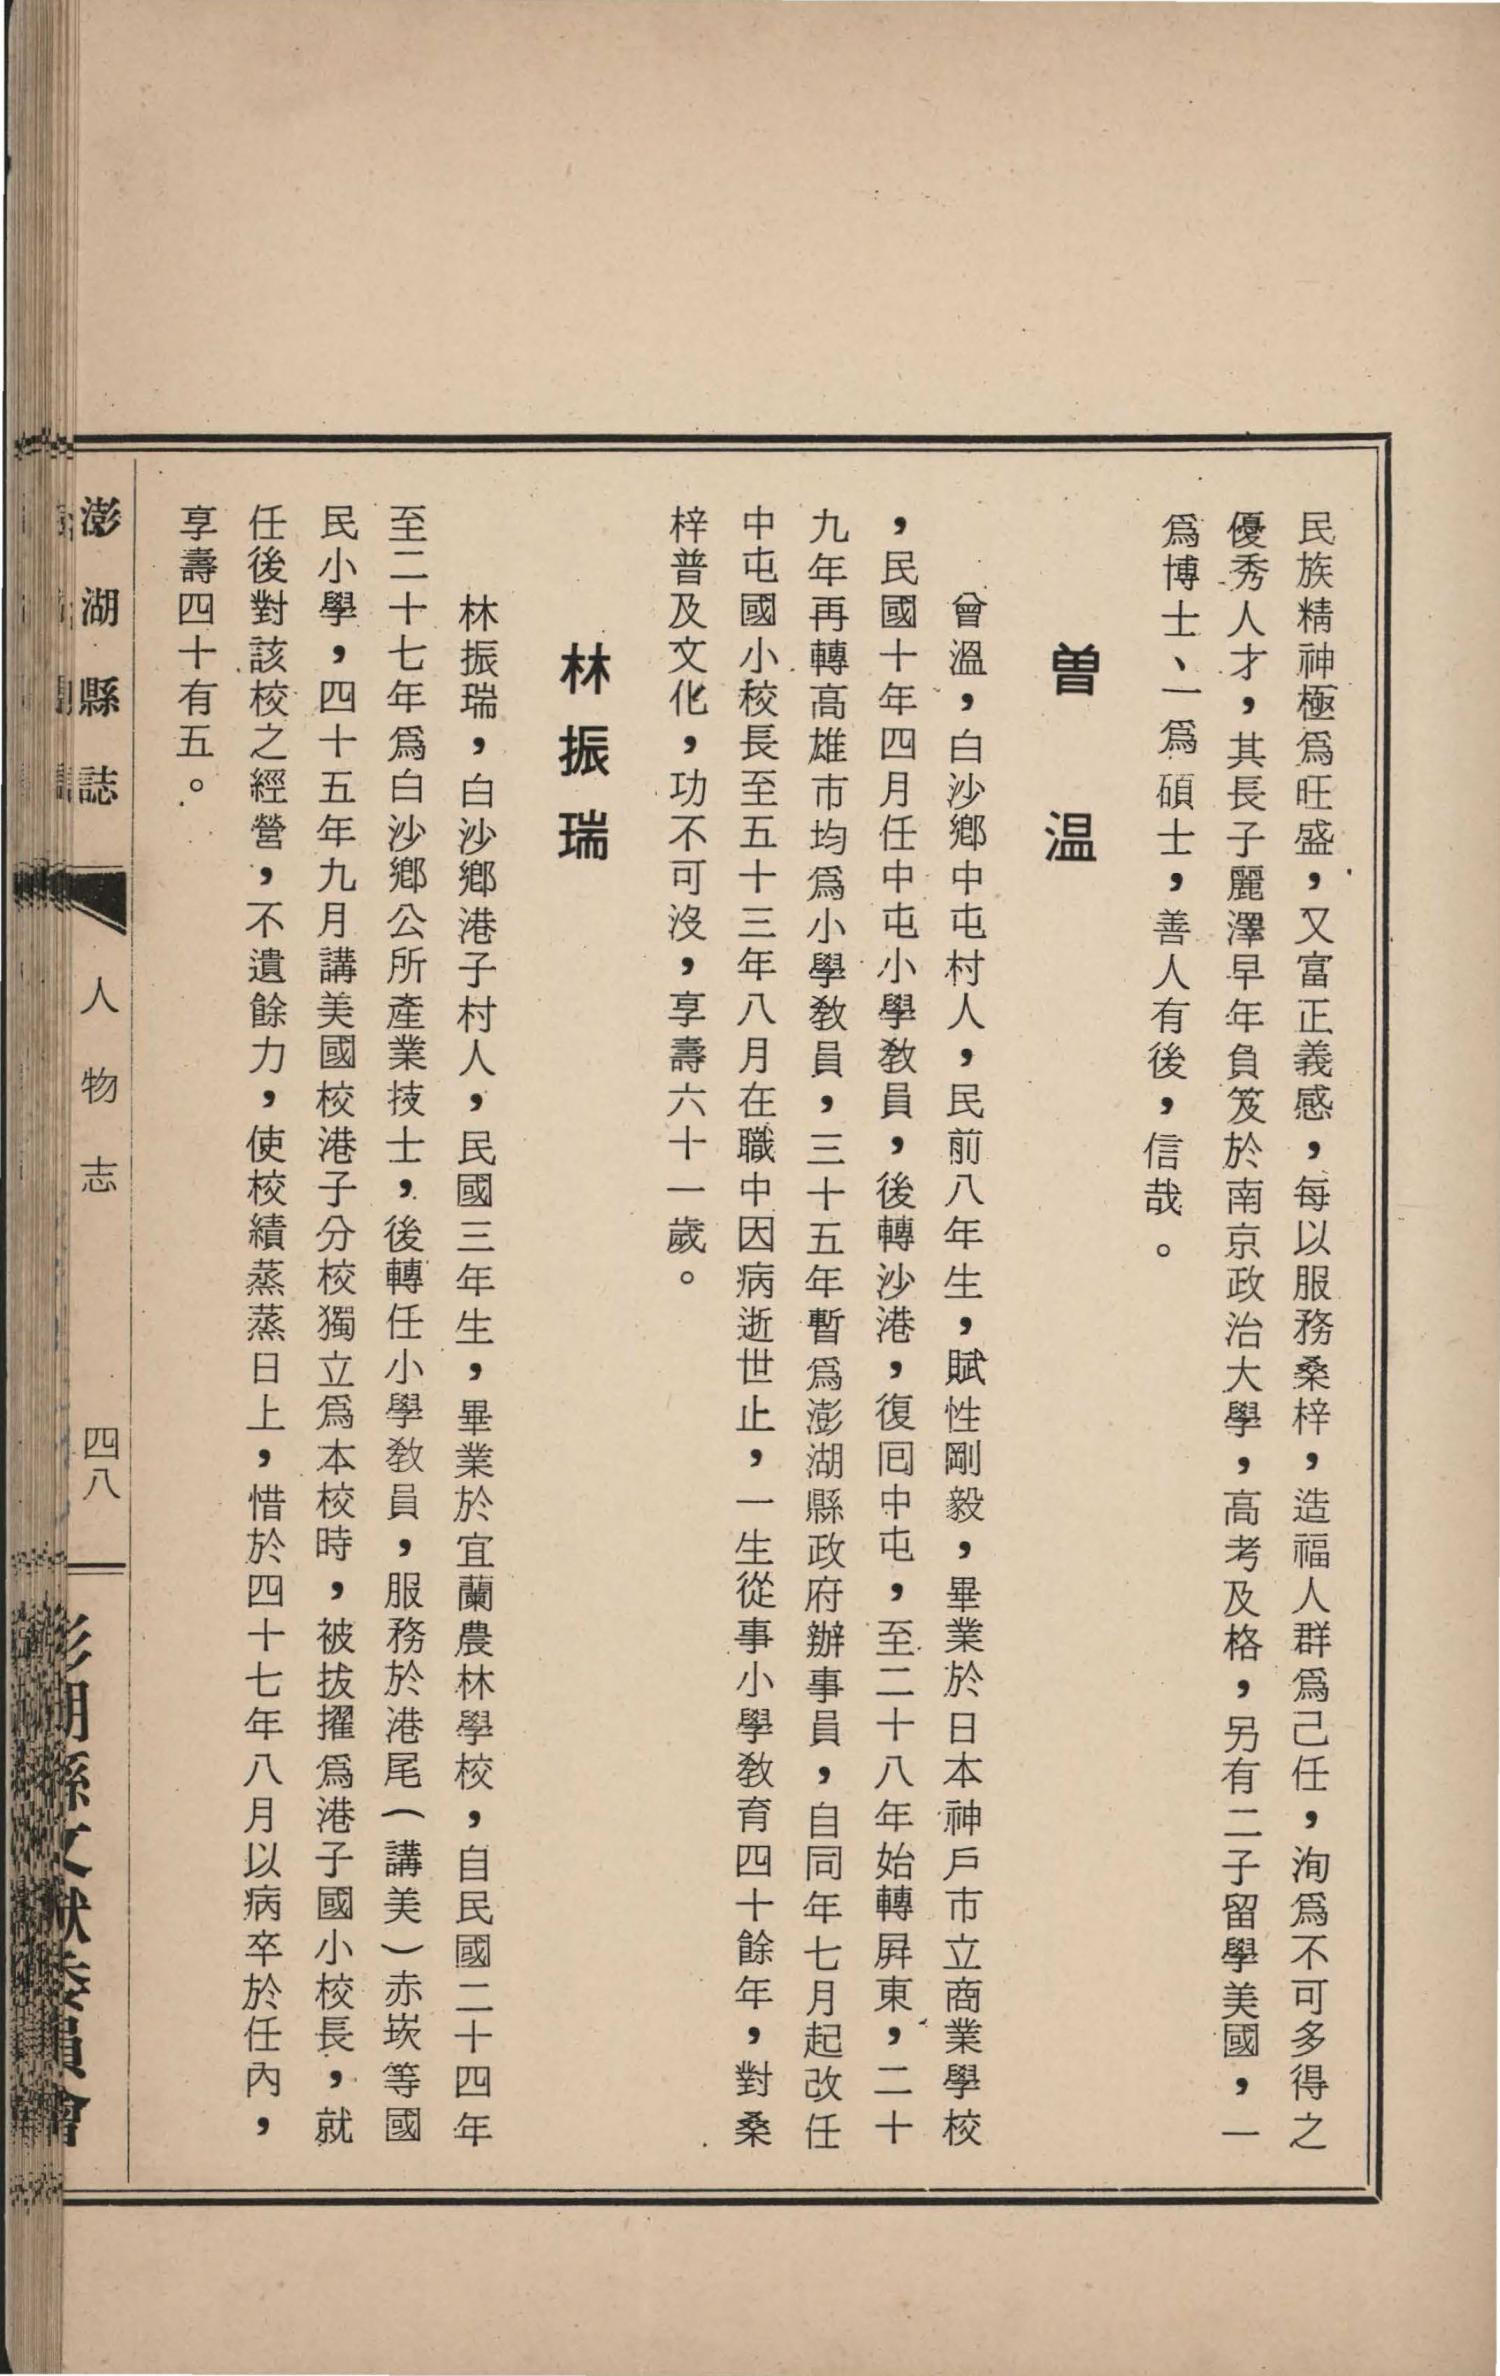 民族精神極爲旺盛，又富正義感，每以服務桑梓，造福人群爲己任，洵爲不可多得之
優秀人才，其長子麗澤早年負笈於南京政治大學，高考及格，另有二子留學美國，一
爲博士、一爲碩士，善人有後，信哉。
曾溫
曾溫，白沙鄉中屯村人，民前八年生，賦性剛毅，畢業於日本神戶市立商業學校
，民國十年四月任中屯小學教員，後轉沙港，復囘中屯，至二十八年始轉屏東，二十
九年再轉高雄市均爲小學教員，三十五年暫爲澎湖縣政府辦事員，自同年七月起改任
中屯國小校長至五十三年八月在職中因病逝世止，一生從事小學教育四十餘年，對桑
梓普及文化，功不可沒，享壽六十一歲。
林振瑞
林振瑞，白沙鄉港子村人，民國三年生，畢業於宜蘭農林學校，自民國二十四年
至二十七年爲白沙鄉公所產業技士，後轉任小學教員，服務於港尾（講美）赤崁等國
民小學，四十五年九月講美國校港子分校獨立爲本校時，被拔擢爲港子國小校長，就
任後對該校之經營，不遺餘力，使校績蒸蒸日上，惜於四十七年八月以病卒於任內，
享壽四十有五。
澎湖縣誌 人物志 四八 澎湖縣文獻委員會